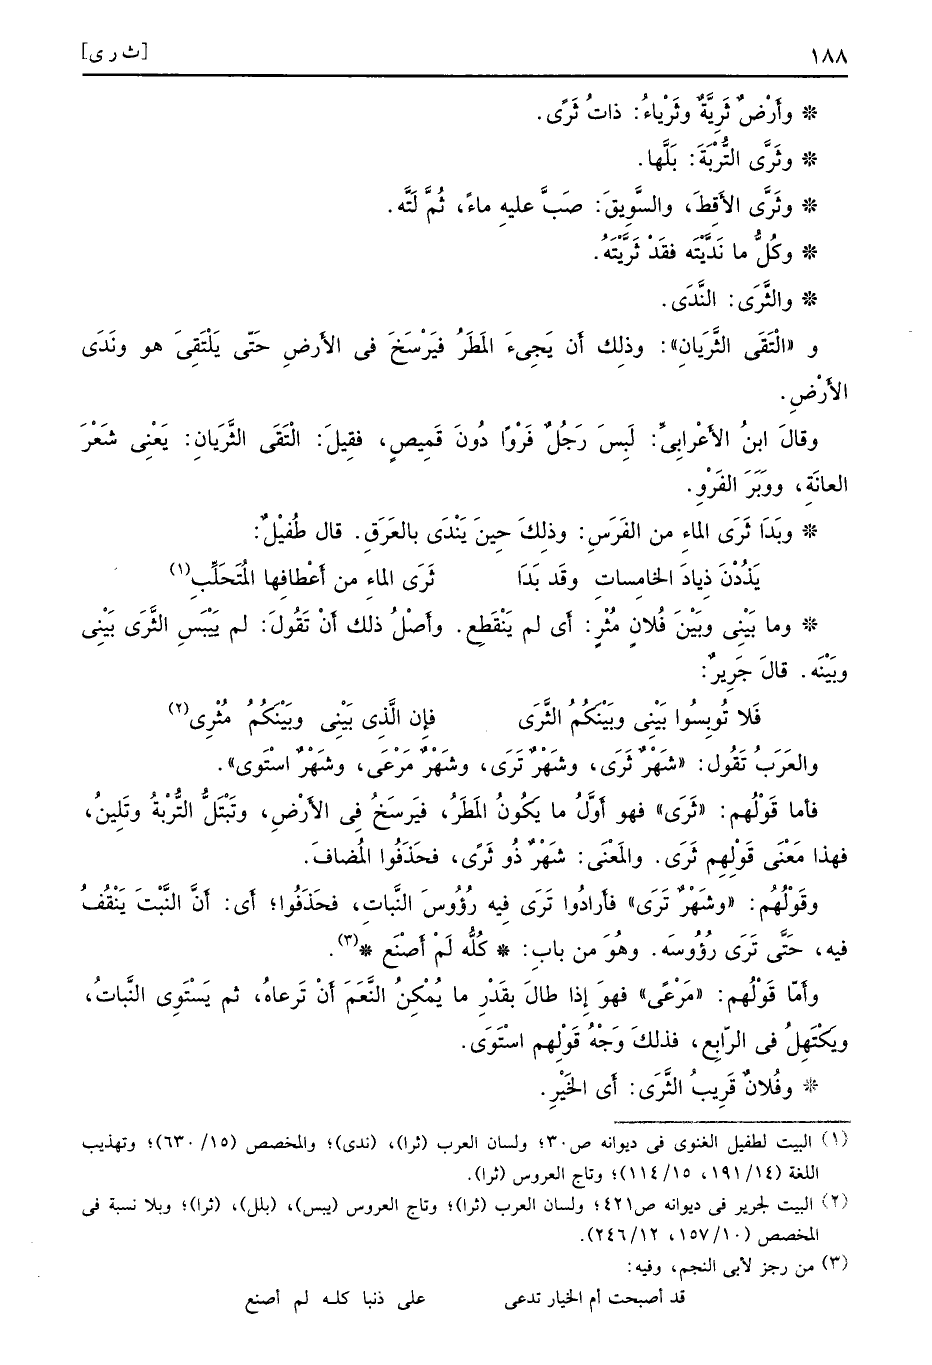 ١٨٨ [ث ر ى]
* وأَرْضٌ ثَرِيَّةٌ وثَرْياءُ: ذاتُ ثَرًى.
* وثَرَّى التُّرْبَةَ: بَلَّها.
* وثَرَّى الأَقِطَ، والسَّوِيقَ: صَبَّ عليهِ ماءً، ثُمَّ لَتَّه.
* وكُلُّ ما نَدَّيْتَه فقَدْ ثَرَّيْتَهُ.
* والثَّرَى: النَّدَى.
و «الْتَقَى الثَّرَيانِ»: وذلِك أن يَجِىءَ المَطَرُ فيَرْسَخَ فى الأَرضِ حَتّى يَلْتَقِىَ هو ونَدَى
الأَرْضِ.
وقالَ ابنُ الأَعْرابِىِّ: لَبِسَ رَجُلٌ فَرْوًا دُونَ قَمِيصٍ، فقِيلَ: الْتَقَى الثَّرَيانِ: يَعْنِى شَعْرَ
العانَةِ، ووَبَرَ الفَرْوِ.
* وبَدَا ثَرَى الماءِ من الفَرَسِ: وذلِكَ حِينَ يَنْدَى بالعَرَقِ. قال طُفَيْلٌ:
يَذُدْنَ ذِيادَ الخامِساتِ وقَد بَدَا ثَرَى الماءِ من أَعْطافِها المُتَحَلِّبِ(١)
* وما بَيْنِى وبَيْنَ فُلانٍ مُثْرٍ: أى لم يَنْقَطِع. وأَصْلُ ذلك أنْ تَقُولَ: لم يَيْبَسِ الثَّرَى بَيْنِى
وبَيْنَه. قالَ جَرِيرٌ:
فَلا تُوبِسُوا بَيْنِى وبَيْنَكُمُ الثَّرَى فإن الَّذِى بَيْنِى وبَيْنَكُمُ مُثْرِى(٢)
والعَرَبُ تَقُول: «شَهْرٌ ثَرَى، وشَهْرٌ تَرَى، وشَهْرٌ مَرْعَى، وشَهْرٌ اسْتَوى».
فأما قَوْلُهم: «ثَرَى» فهو أوَّلُ ما يَكُونُ المَطَرُ، فيَرسَخُ فى الأَرْضِ، وتَبْتَلُّ التُّرْبةُ وتَلِينُ،
فهذا مَعْنَى قَوْلِهِم ثَرَى. والمَعْنَى: شَهْرٌ ذُو ثَرًى، فحَذَفُوا المُضافَ.
وقَوْلُهُم: «وشَهْرٌ تَرَى» فأرادُوا تَرَى فيهِ رُؤُوسَ النَّباتِ، فحَذَفُوا؛ أى: أنَّ النَّبْتَ يَنْقُفُ
فيه، حَتَّى تَرَى رُؤُوسَه. وهُوَ من بابِ: * كُلُّه لَمْ أَصْنَعِ *(٣).
وأَمّا قَوْلُهم: «مَرْعًى» فهوَ إذا طالَ بقَدْرِ ما يُمْكِنُ النَّعَمَ أنْ تَرعاهُ، ثم يَسْتَوِى النَّباتُ،
ويَكْتَهِلُ فى الرّابِعِ، فذلكَ وَجْهُ قَوْلِهم استَوَى.
* وفُلانٌ قَرِيبُ الثَّرَى: أى الخَيْرِ.
(١) البيت لطفيل الغنوى فى ديوانه ص٣٠؛ ولسان العرب (ثرا)، (ندى)؛ والمخصص (١٥/ ٦٣٠)؛ وتهذيب
اللغة (١٤/ ١٩١، ١٥/ ١١٤)؛ وتاج العروس (ثرا).
(٢) البيت لجرير فى ديوانه ص٤٢١؛ ولسان العرب (ثرا)؛ وتاج العروس (يبس)، (بلل)، (ثرا)؛ وبلا نسبة فى
المخصص (١٠/ ١٥٧، ١٢/ ٢٤٦).
(٣) من رجز لأبى النجم، وفيه:
قد أصبحت أم الخيار تدعى على ذنبا كلـه لم أصنع